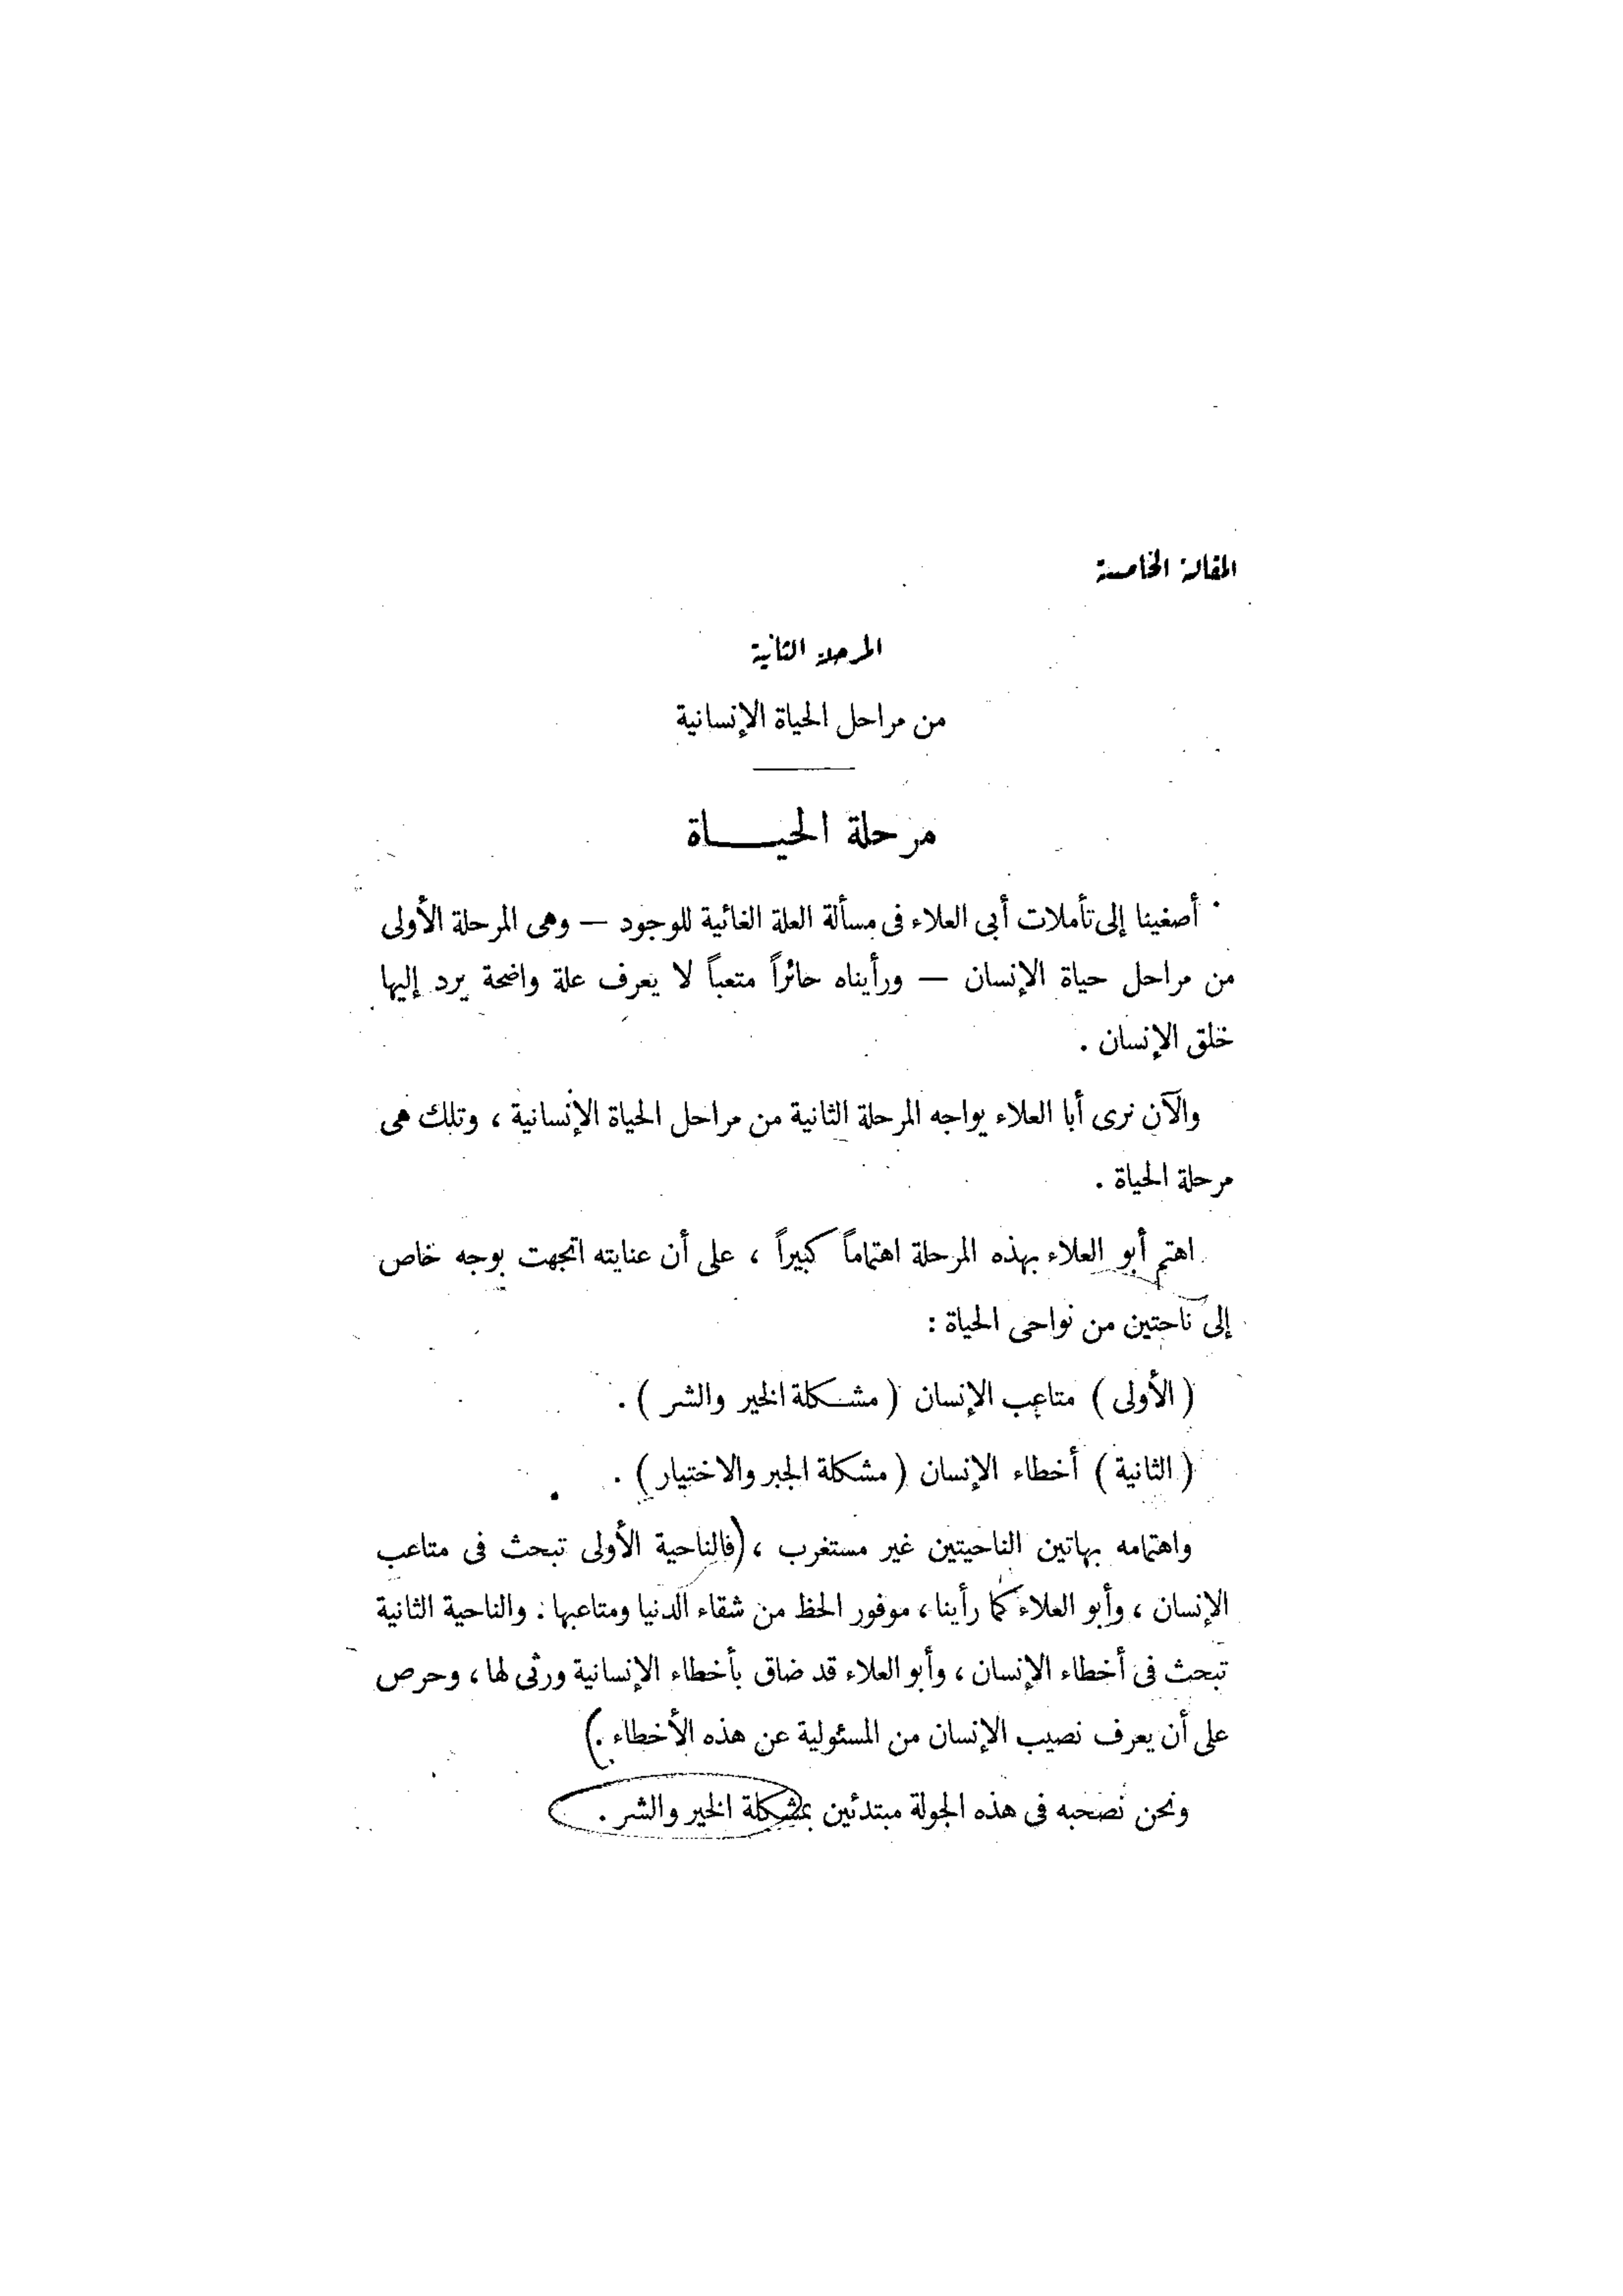 المقالة الخامسة
المرحلة الثانية
من مراحل الحياة الإنسانية
مرحلة الحيــاة
أصغينا إلى تأملات أبى العلاء فى مسألة العلة الغائية للوجود — وهى المرحلة الأولى
من مراحل حياة الإنسان — ورأيناه حائراً متعباً لا يعرف علة واضحة يرد إليها
خلق الإنسان .
والآن نرى أبا العلاء يواجه المرحلة الثانية من مراحل الحياة الإنسانية ، وتلك هى
مرحلة الحياة .
اهتم أبو العلاء بهذه المرحلة اهتماماً كبيراً ، على أن عنايته اتجهت بوجه خاص
إلى ناحتين من نواحى الحياة :
( الأولى ) متاعب الإنسان ( مشـكلة الخير والشر ) .
( الثانية ) أخطاء الإنسان ( مشكلة الجبر والاختيار ) .
واهتمامه بهاتين الناحيتين غير مستغرب ، (فالناحية الأولى تبحث فى متاعب
الإنسان ، وأبو العلاء كما رأينا ، موفور الحظ من شقاء الدنيا ومتاعبها . والناحية الثانية
تبحث فى أخطاء الإنسان ، وأبو العلاء قد ضاق بأخطاء الإنسانية ورثى لها ، وحرص
على أن يعرف نصيب الإنسان من المسئولية عن هذه الأخطاء .)
ونحن نصحبه فى هذه الجولة مبتدئين بمشكلة الخير والشر .